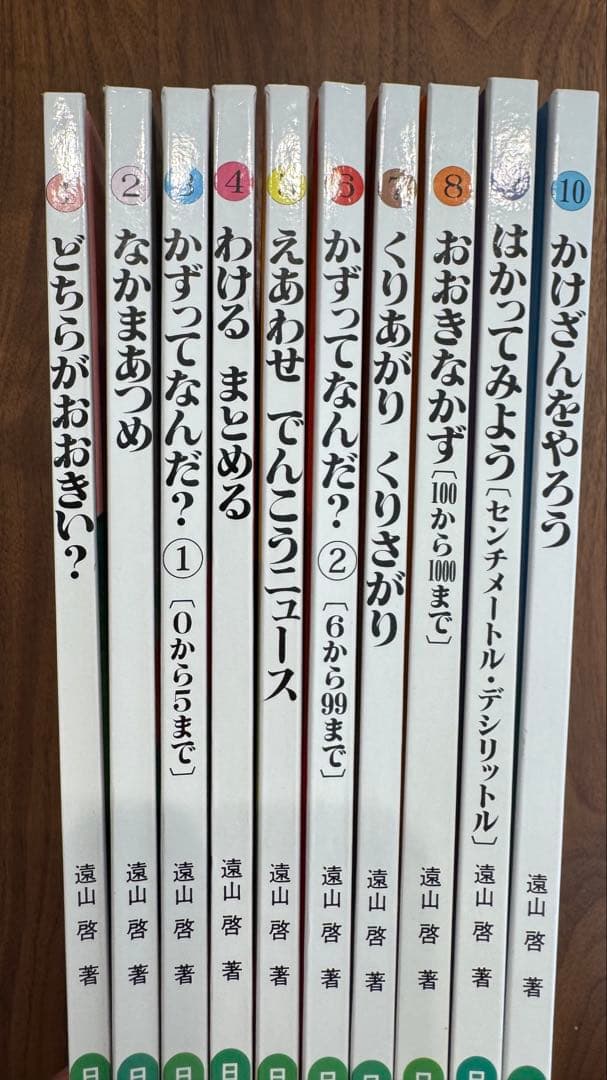 1
どちらがおおきい?
遠山 啓 著
2
なかまあつめ
遠山 啓 著
日
3
かずってなんだ? ① 〔0から5まで〕
遠山 啓 著
日
4
わける まとめる
遠山 啓 著
日
5
えあわせ でんこうニュース
遠山 啓 著
日
6
かずってなんだ? ② 〔6から99まで〕
遠山 啓 著
7
くりあがり くりさがり
遠山 啓 著
8
おおきなかず〔100から1000まで〕
遠山 啓 著
日
はかってみよう〔センチメートル・デシリットル〕
遠山 啓 著
日
10
かけざんをやろう
遠山 啓 著